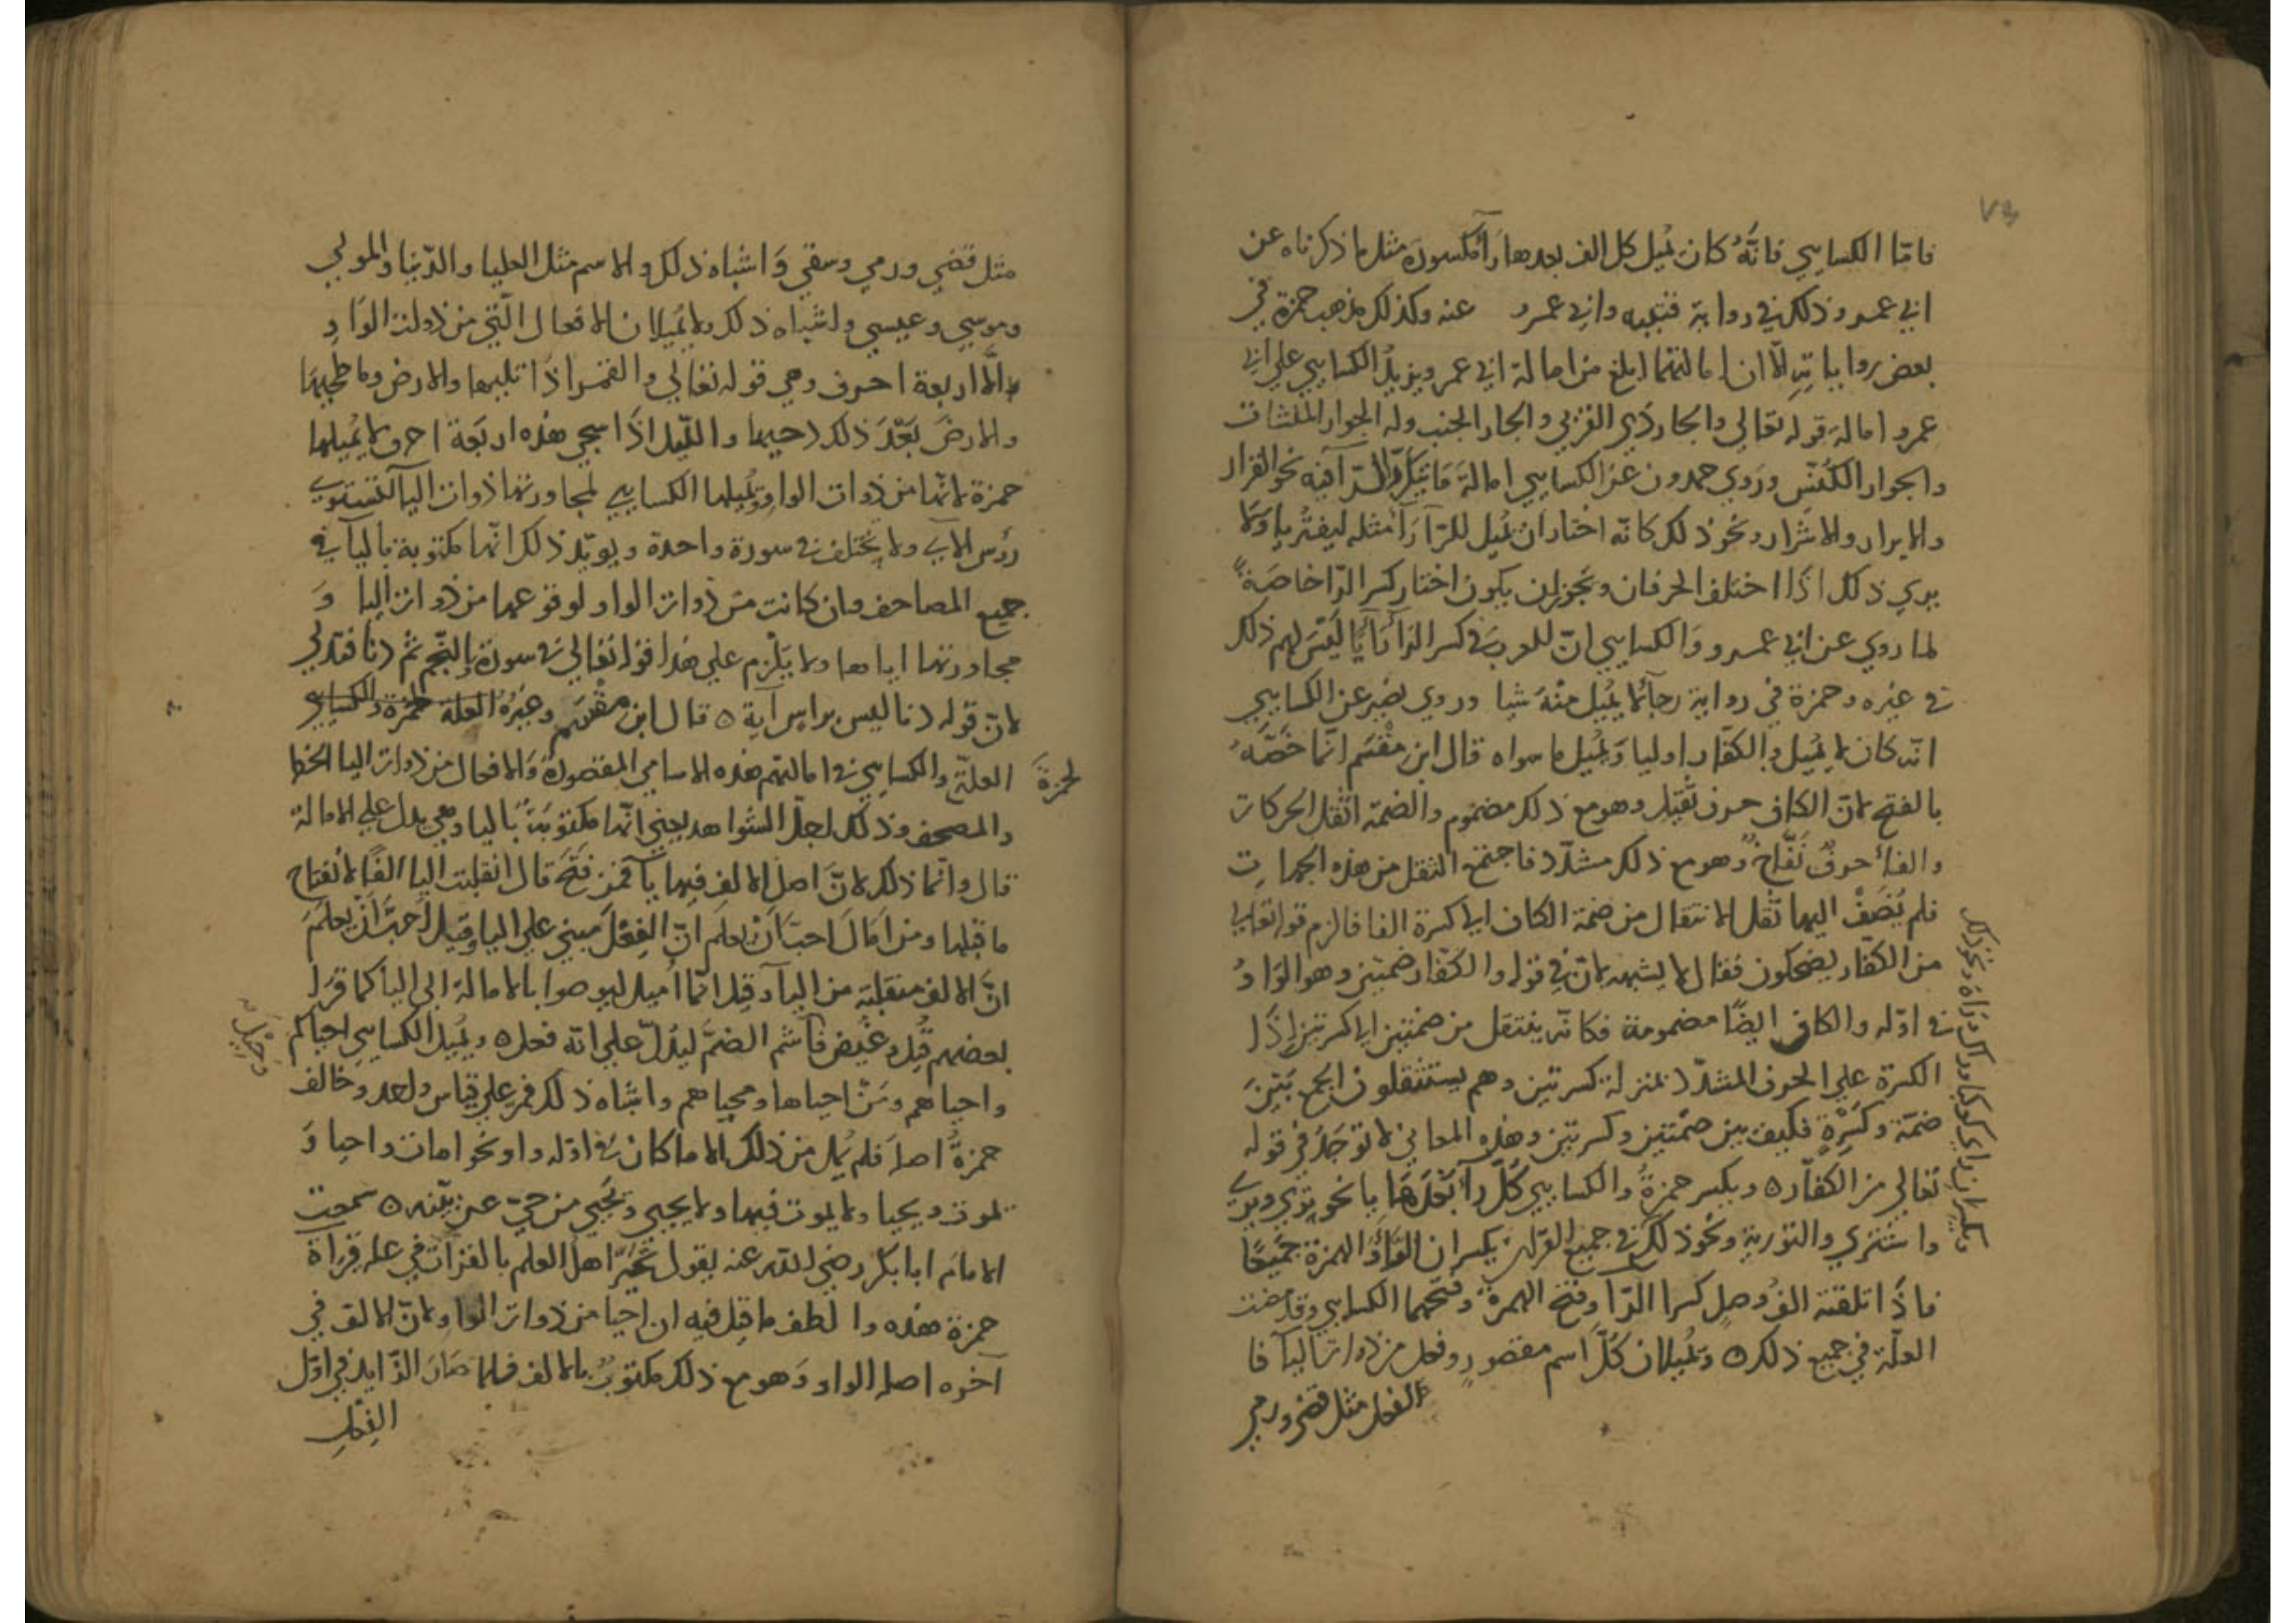 ٧٣
فامّا الكسايي فانّهُ كان يُميل كل الف بعدها رآ مكسورة مثل ما ذكرناه عن
ابي عمرو وذلك في رواية قتيبه وابي عمرو عنه وكذلك مذهب حمزة في
بعض رواياتهِ الّا ان امالتهما ابلغ من امالة ابي عمرو ويزيدُ الكسايي علي ابي
عمرو امالة قوله تعالي والجار ذي القربي والجار الجنب وله الجوار المنشات
والجوار الكنّس ورَوي حمدون عن الكسايي امالةَ مَا تتكرّر الرّآ فيه نحو القرار
والابرار والاشرار ونحو ذلك كانّه اختار ان يُميل للرّآ رَآ مثله ليقترباِ وَلا
يري ذلك اذَا اختلف الحرفان ويجوز ان يكون اختار كسر الرّا خاصَةً
لما روي عن ابي عمرو وَالكسايي انّ للعرب في كسر الرّا رَاْيًا لَيْسَ لهم ذلك
في غيره وحمزة في رواية رجآ لا يُميل منْهُ شيا وروي نصَير عن الكسايي
انّه كان لا يُميل والكفّار اوليا وَيميل ما سواه قال ابن مقْسَم انّما خَصَّهُ
بالفتح لانّ الكاف حرف ثقيل وهو مع ذلك مضموم والضمّة اثقل الحركات
والفاء حرفٌ نَفّاخٌ وهو مع ذلك مشدّد فاجتمع الثقل من هذه الجهات
فلم يُضَفْ اليها ثقْل الانتقال من ضمة الكاف الي كسرة الفا فالزم قوله تعالي
من الكفّار يضحكون فقال لا يشبهه لانّ في قوله والكفّار ضمتين وهو الوَاوُ
في اوّله والكاف ايضًا مضمومة فكانّه ينتقل من ضمتين الي كسرتين اِذًا
الكسرة علي الحرف المشدّد بمنزلة كسرتين وهم يستثقلون الجمع بَيْنَ
ضمّة وكسْرةٍ فكيف بين ضمّتين وكسرتين وهذه المعاني لا توجَدُ في قوله
تعالي من الكفّار ه ويكسر حمزةُ والكسايي كُلّ رآ بَعْدَهَا يا نحو يري ويري
واشتري والتورية ونحو ذلك في جميع القران يكسران الرّاَ وَالهمزة جميْعًا
فاذَا تلقته الفُ وصلٍ كسرا الرّا وفتح الهمزة وفتحهما الكسايي وقد مضت
العلّة في جميع ذلك ه ويُميلان كُلَّ اسم مقصورٍ وفعل من ذوات اليآ فا
الفعل مثل قضي ورمي
مثل قضي ورمي وسقي وَاشباه ذلك والاسم مثل العليا والدّنيا والمولي
وموسي وعيسي واشباه ذلك ولا يُميلان الافعال الّتي من ذوات الوَاوِ
الَّا اربعة احرف وهي قوله تعالي والقمر اذَا تليها والارض وما طحيهَا
والارضَ بَعْدَ ذلك دحيها والليّل اذَا سجي هذه اربَعة احرف لا يُميلها
حمزة لانّها من ذوات الواو ويُميلها الكسايي لمجاورتها ذوات اليآ لتستوي
رؤس الآي ولا يختلف في سورة واحدة ويويّد ذلك انّها مكتوبة باليآ في
جميع المصاحف وان كانت من ذوات الواو لوقوعها من ذوات اليا وَ
مجاورتها اياها ولا يَلْزم علي هذا قوله تعالي في سورة والنّجم ثم دنا فتدلي
لانّ قوله دنا ليس براس آية ه قال ابن مقْسَم وغيرُهُ العلة لحمزة والكسايي
لحمزَة
العلّة والكسايي في امالتهم هذه الاسامي المقصورة وَالافعال من ذوات اليا الخط
والمصحف وذلك اجلّ الشواهد يعني انّها مكتوبَةٌ باليا وهي يدل علي الامالة
قال وانّما ذلك لانّ اصل الالف فيها يآ فمن فتَحَ قال انقلبت اليا الفًا لانفتاح
ما قبلها ومن امَالَ احبّ اَنْ يعلم انّ الفِعْلَ مبني علي اليا وقيل احَبَّ اَنْ يعلَمَ
انَّ الالف منقلبة من اليآ وقيل انّما اُميل ليوصوا بالامالة الي اليا كما قرا
بعضهم قُيل وغُيض فاشم الضمَّ ليدُلّ علي انّه فعل ه ويُميل الكسايي احياكم
واحياهم ومَنْ احياها ومحياهم واشباه ذلك فمر علي قياس واحد وخالف
حمزةُ اصلَه فلم يُمل من ذلك الا ما كان في اوّله واو نحو امات واحيا وَ
نموت ويحيا ولا يموت فيها ولا يحيي ويَحْيي من حيّ عن بيّنه ه سمعت
الامام ابا بكر رضي اللّه عنه يقول تحَيّرَ اهل العلم بالقراآت في علة قراة
حمزة هذه والطف ما قيل فيه ان احيا من ذوات الواو ولانّ الالف في
آخره اصله الواو وَهو مع ذلك مكتوبٌ بالالف فلما صَارَ الزّايد في اوّل
الفِعْلِ